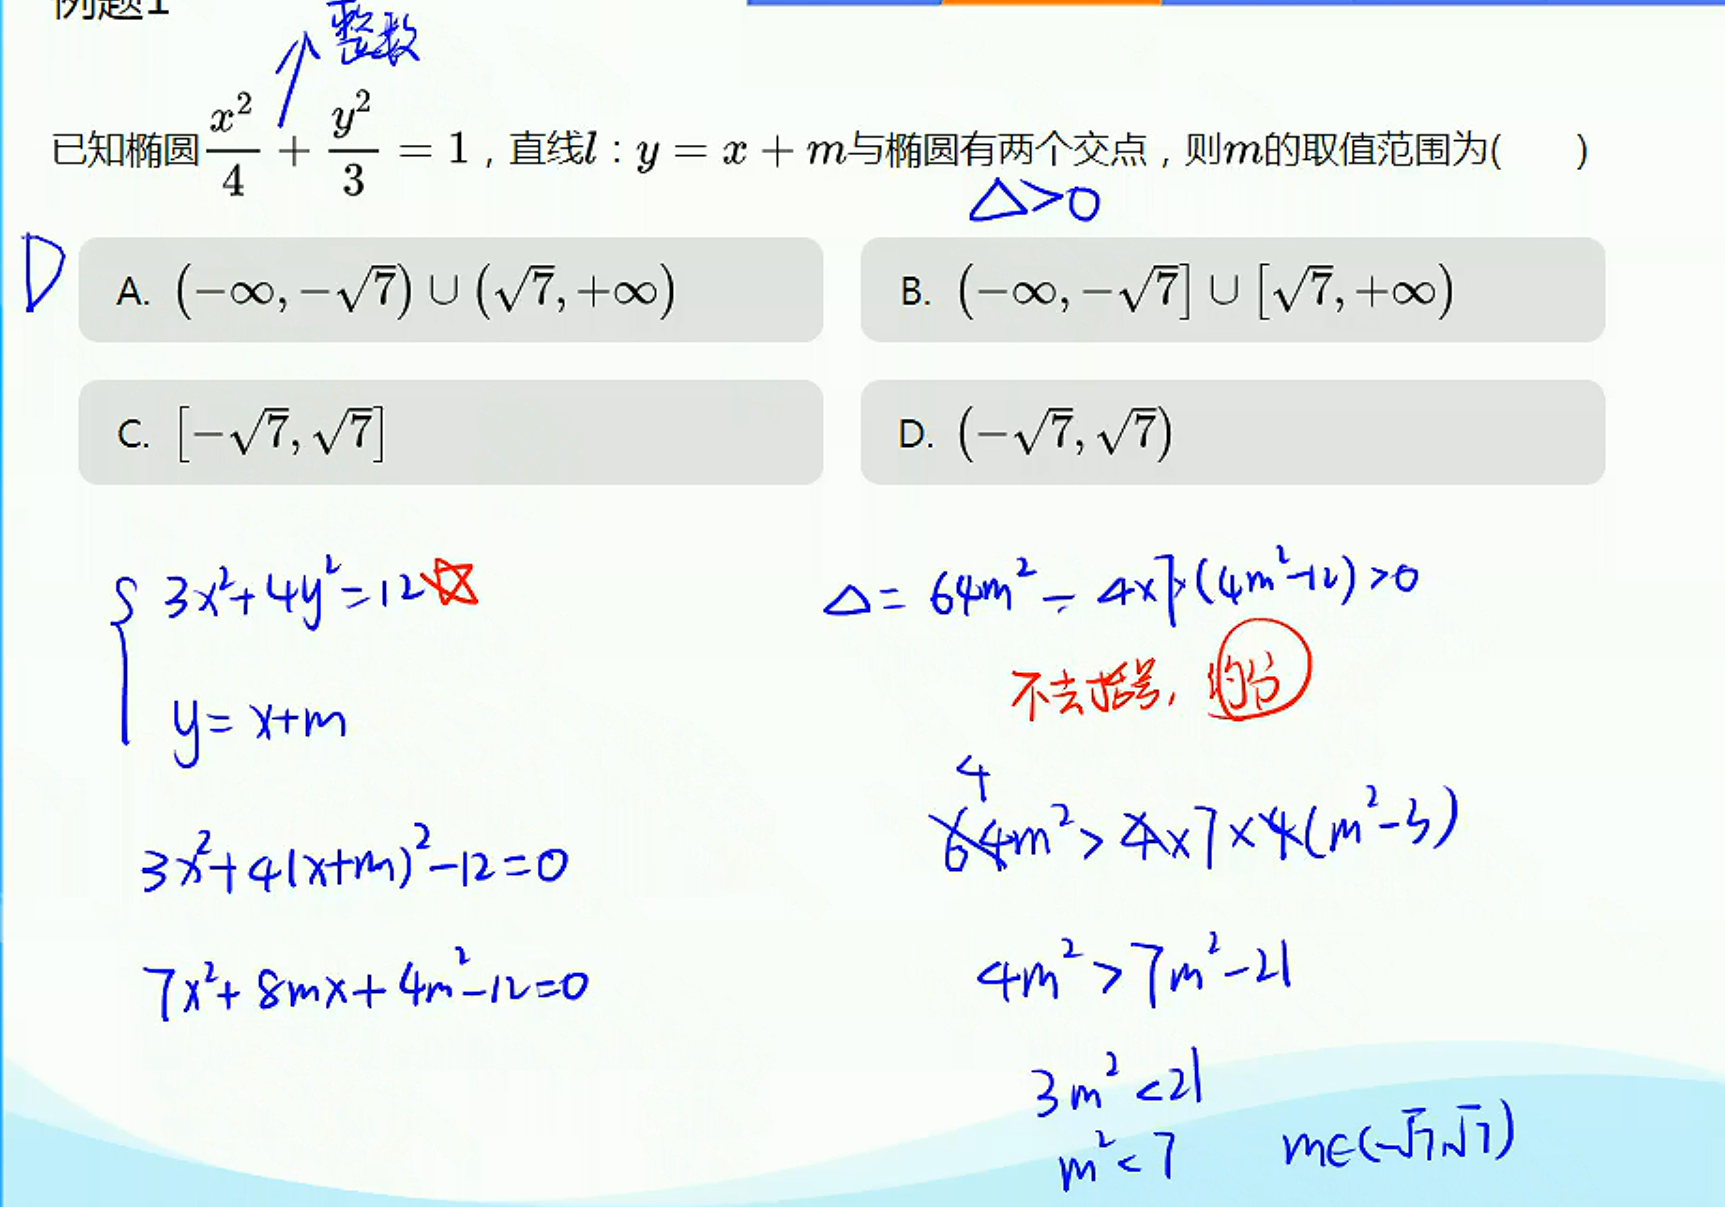 例题1
整数
已知椭圆x²/4 + y²/3 = 1，直线l : y = x + m与椭圆有两个交点，则m的取值范围为(　　)
Δ>0
D
A. (−∞, −√7) ∪ (√7, +∞)
B. (−∞, −√7] ∪ [√7, +∞)
C. [−√7, √7]
D. (−√7, √7)
{ 3x²+4y²=12 ☆
y=x+m
3x²+4(x+m)²-12=0
7x²+8mx+4m²-12=0
Δ= 64m² - 4×7×(4m²-12)>0
不去括号，约分
4
64m² > 4×7×4(m²-3)
4m² > 7m²-21
3m² <21
m² < 7
m∈(-√7,√7)